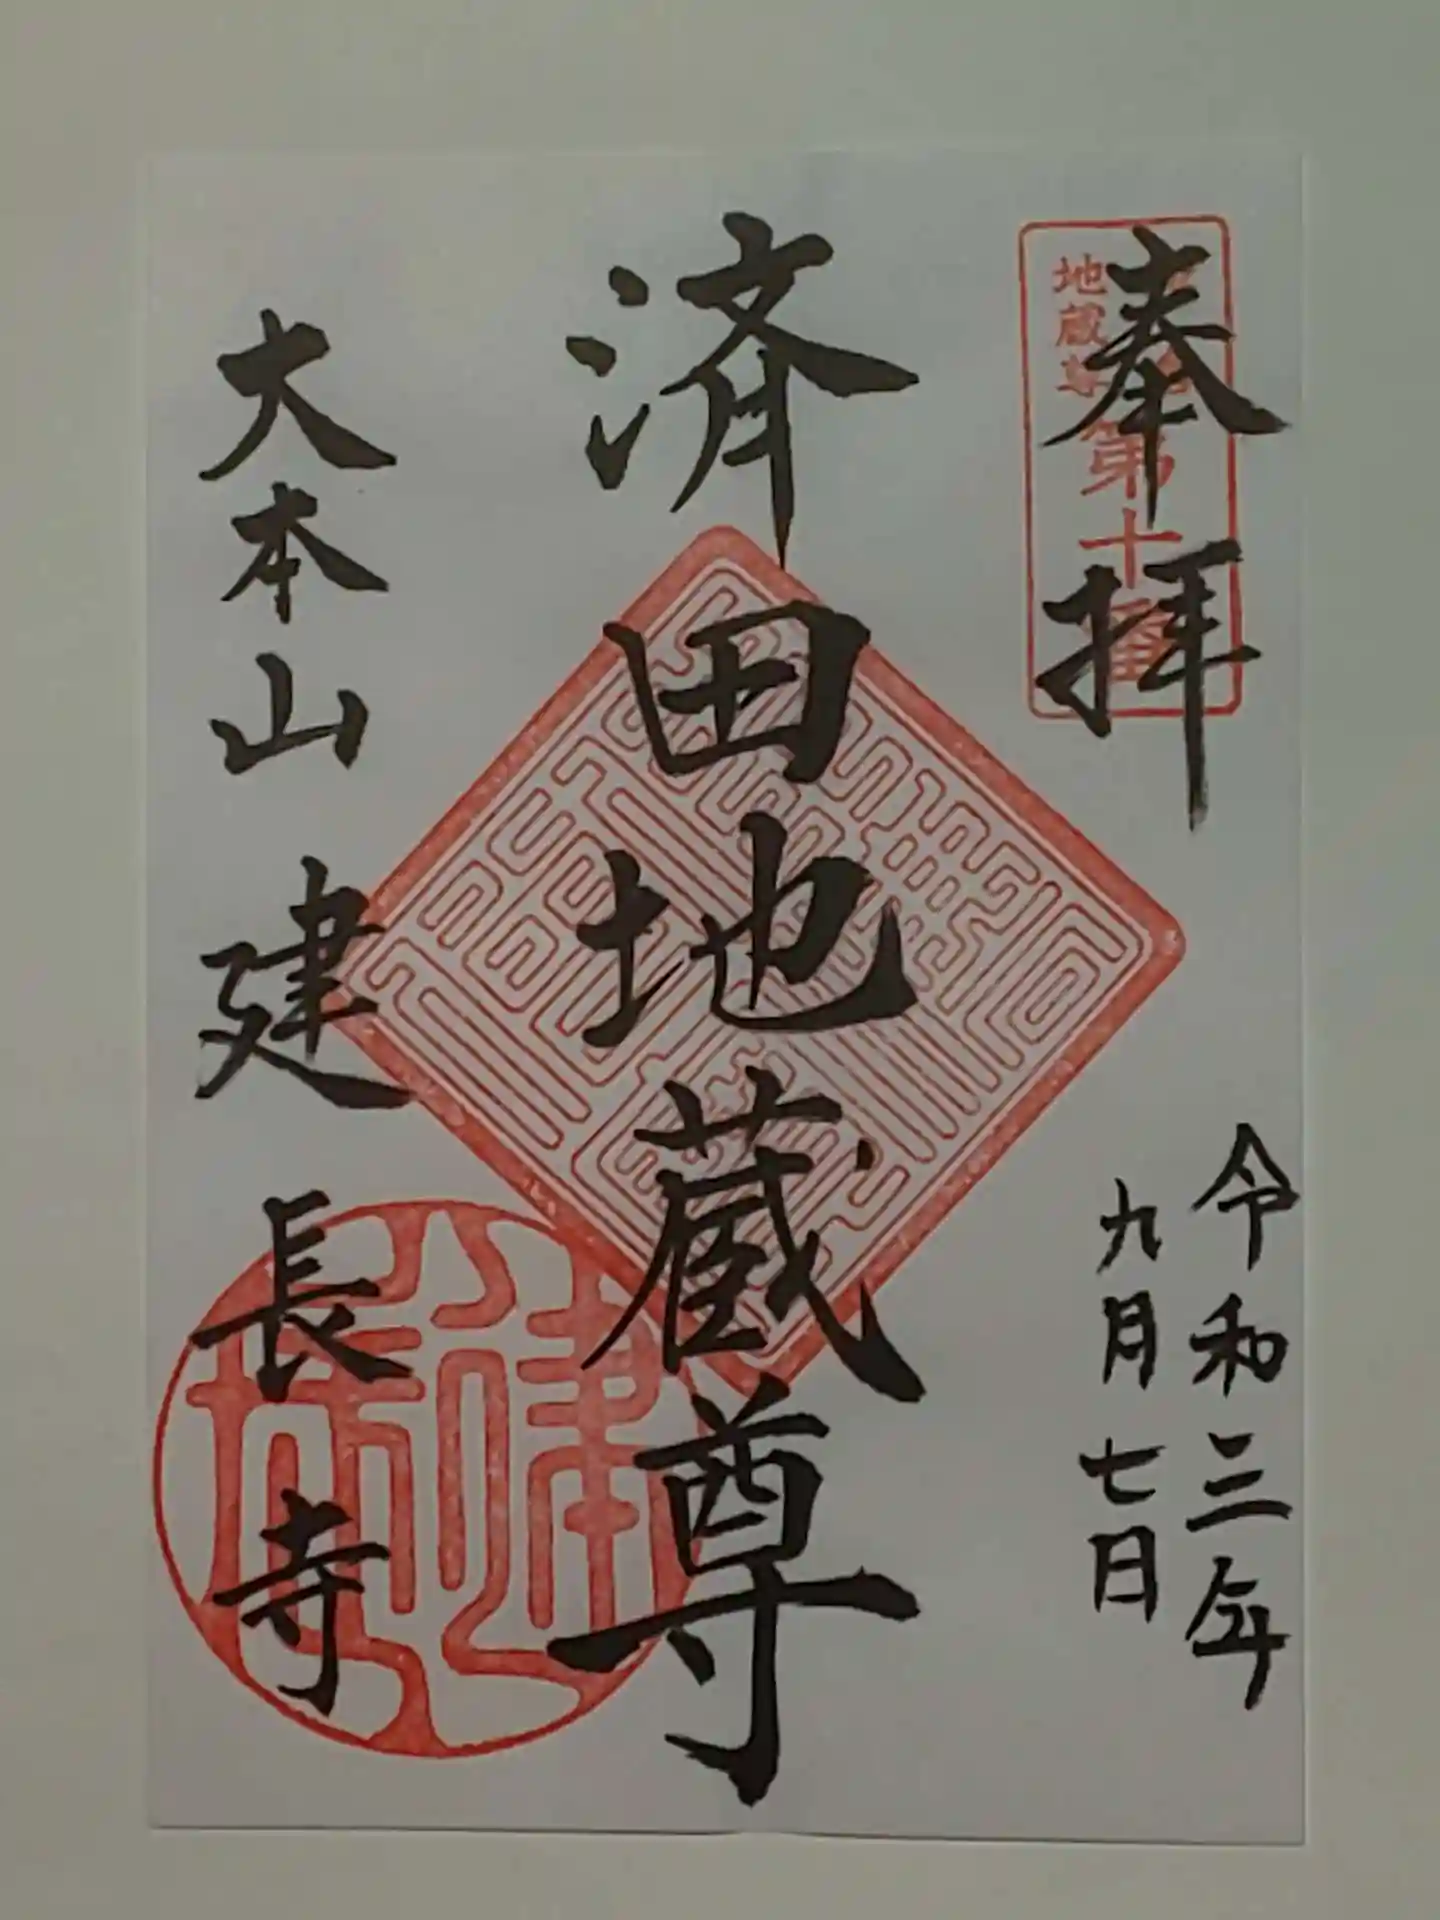 奉拝
地蔵尊
第十番
令和三年
九月七日
済田地蔵尊
大本山建長寺